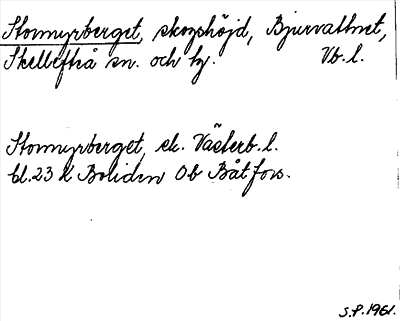 Stormyrberget, skogshöjd, Bjurvattnet,
Skellefteå sn. och hj. Vb. l.
Stormyrberget, ek. Västerb. l.
bl. 23 K Boliden Ob Båtfors.
S.P. 1961.